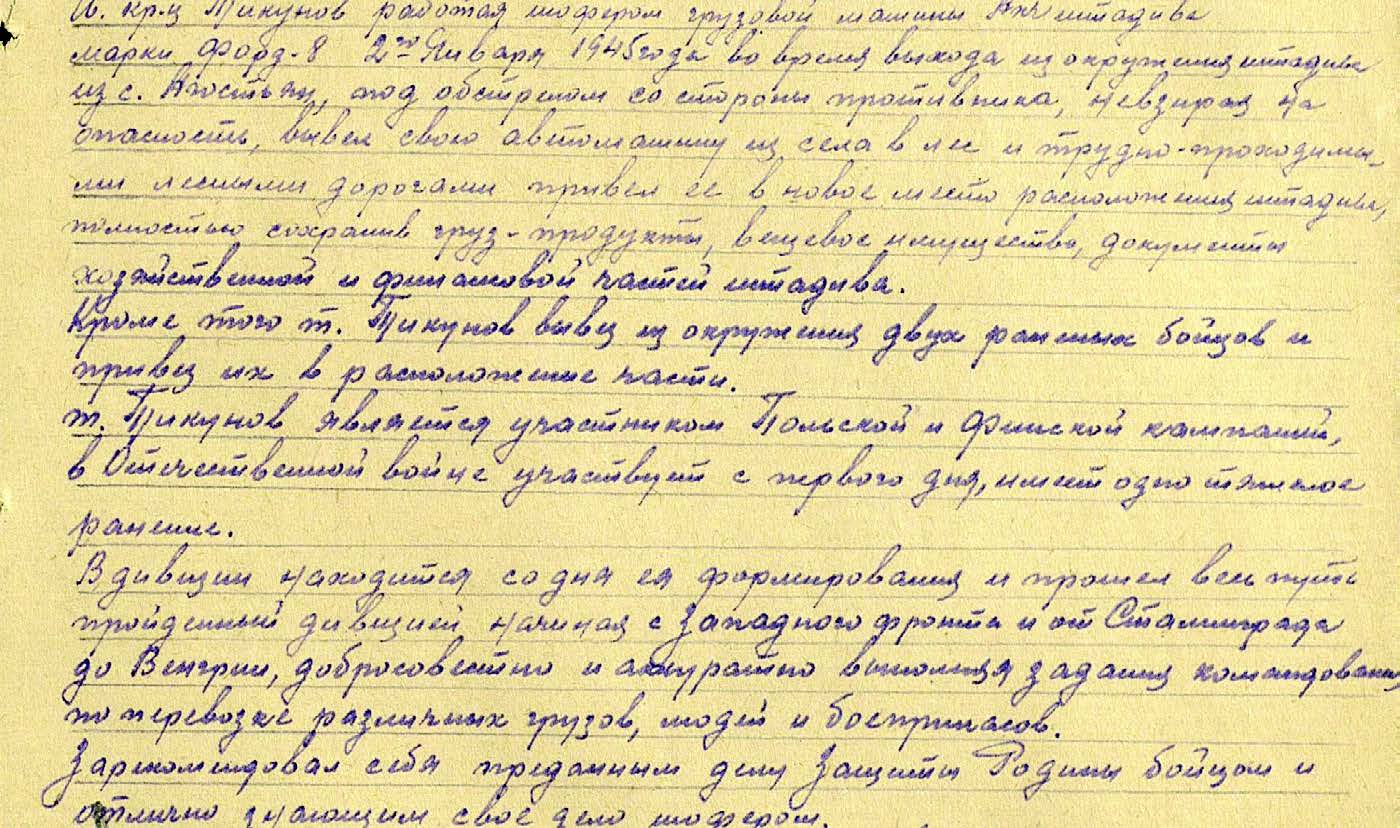 Гв. кр-ц Пикунов работая шофером грузовой машины АХЧ штадива
марки Форд-8 2го Января 1945 года во время выхода из окружения штадива
из с. Агостьян, под обстрелом со стороны противника, невзирая на
опасность, вывел свою автомашину из села в лес и трудно-проходимы-
ми лесными дорогами привел ее в новое место расположения штадива,
полностью сохранив груз - продукты, вещевое имущество, документы
хозяйственной и финансовой частей штадива.
Кроме того т. Пикунов вывез из окружения двух раненых бойцов и
привез их в расположение части.
т. Пикунов является участником Польской и Финской кампаний,
в Отечественной войне участвует с первого дня, имеет одно тяжелое
ранение.
В дивизии находится со дня ея формирования и прошел весь путь
пройденный дивизией начиная с Западного фронта и от Сталинграда
до Венгрии, добросовестно и аккуратно выполняя задания командования
по перевозке различных грузов, людей и боеприпасов.
Зарекомендовал себя преданным делу Защиты Родины бойцом и
отлично знающим свое дело шофером.